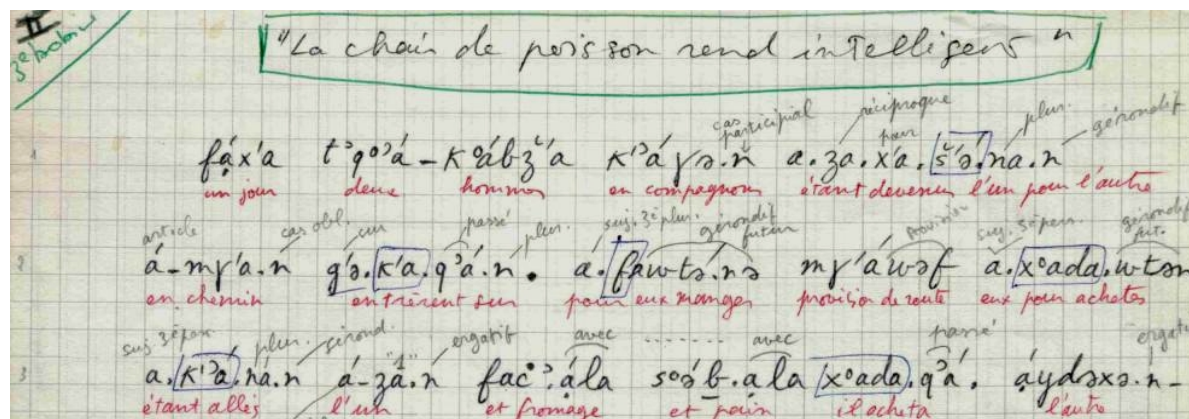 II
"La chair de poisson rend intelligent"
cas participial réciproque pour plur. gérondif
1 fáx'a t'q°'á-k°ábž'a k'’áγə.n a.za.x'a.š'ə́.na.n
un jour deux hommes en compagnons étant devenus l'un pour l'autre
article cas obl. un passé plur. suj. 3è plur. gérondif futur provision suj. 3è pers. gérondif fut.
2 á-mγ'a.n gʹə.k'a.q'á.n. a.fawtə́.nə mγ'áwəf a.x°ada.wtən
en chemin entrèrent sur pour eux manger provision de route eux pour acheter
suj 3è pers plur. gérond. "1" ergatif avec ....... avec passé
3 a.k'’á.na.n á-zá.n fac°’.ála s°áb.ala x°ada.q'á. áydəxə.n-
étant allés l'un et fromage et pain il acheta l'autre